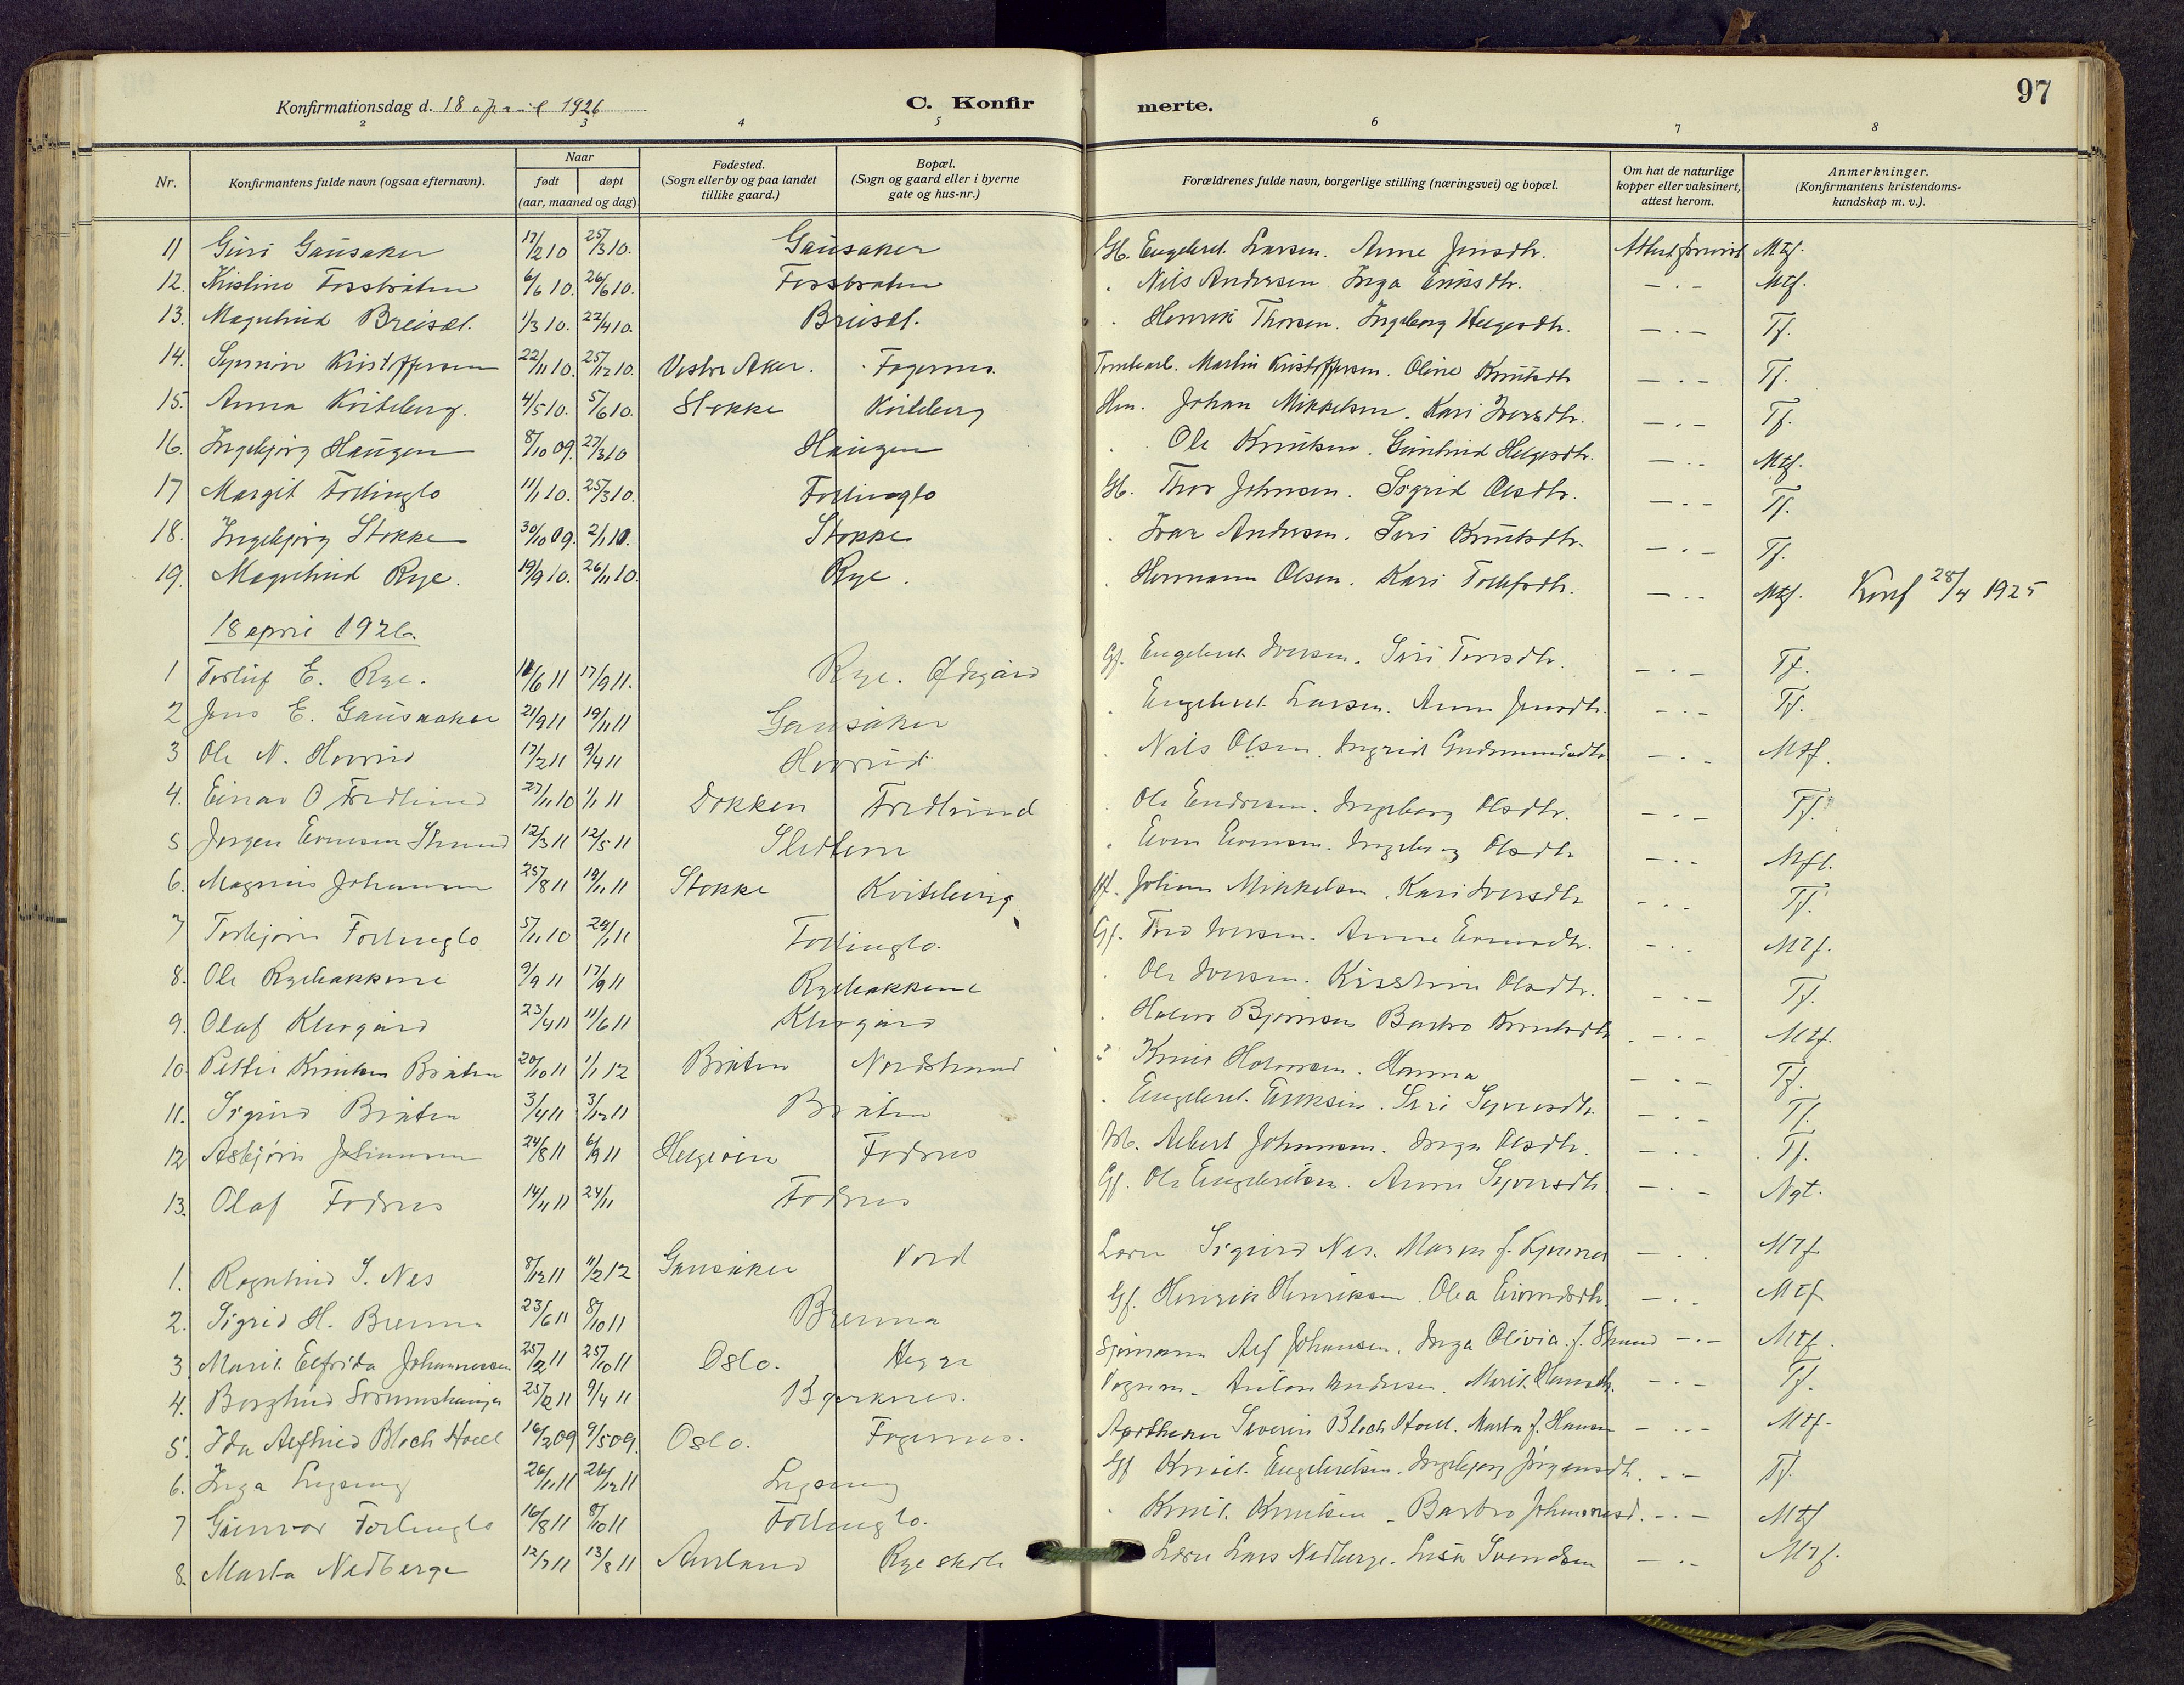 97
Konfirmationsdag d. 18 april 1926
C. Konfir merte.
2 3 4 5 6 7 8
Nr.
Konfirmantens fulde navn (ogsaa efternavn).
Naar
født døpt
(aar, maaned og dag)
Fødested.
(Sogn eller by og paa landet
tillike gaard.)
Bopæl.
(Sogn og gaard eller i byerne
gate og hus-nr.)
Forældrenes fulde navn, borgerlige stilling (næringsvei) og bopæl.
Om hat de naturlige
kopper eller vaksinert,
attest herom.
Anmerkninger.
(Konfirmantens kristendoms-
kundskap m. v.).
11 Guri Gausaker 17/2 10 25/3 10. Gausaker Gb. Engebret Larsen. Anne Jensdtr. Mtf.
12. Kristine Fossbråten 6/6 10. 26/6 10. Fossbråten Nils Andersen Inga Eriksdtr. — . — Mtf.
13. Magnhild Breisæt. 1/3 10. 22/4 10. Breisæt. Henrik Thorsen. Ingeborg Helgesdtr. — . — Tf.
14. Synnøve Kristoffersen 22/11 10. 25/12 10. Vestre Aker. Fagernes. Martin Kristoffersen. Oline Knutsdtr — . — Tf.
15. Anna Kviteberg. 4/5 10. 5/6 10. Stokke Kviteberg Hm. Johan Mikkelsen. Kari Iversdtr. — . — Tf.
16. Ingebjørg Haugen 8/10 09. 27/3 10 Haugen Ole Knutsen. Gunhild Helgesdtr. — . - Mtf.
17 Margit Follinglo 11/1 10. 25/3 10. Follinglo Gb. Thor Johnsen. Sigrid Olsdtr. — . — Tf.
18. Ingebjørg Stokke 30/10 09. 2/1 10. Stokke Ivar Andersen. Siri Knutsdtr. — . — Tf.
19. Magnhild Rye. 19/9 10. 26/11 10. Rye. Hermann Olsen. Kari Tollefsdtr. — . - Mtf. Konf 28/4 1925
18 april 1926.
1 Torleif E. Rye. 11/6 11 17/9 11. Rye. Ødegård Gf. Engebret Iversen. Siri Torsdtr. — . — Tf.
2 Jens E. Gausaker 21/9 11 19/11 11 Gausåker Engebret Larsen. Anne Jensdtr. — . — Tf.
3 Ole N. Hovrud 17/2 11 9/4 11 Hovrud Nils Olsen. Ingrid Gudmundsdtr — . — Mtf.
4. Einar O Fredlund 27/11 10 1/1 11 Dokken Fredlund Ole Endresen. Ingeborg Olsdtr. — . — Tf.
5 Jørgen Evensen Strand 12/3 11 12/5 11 Sletten Even Evensen. Ingeborg Olsdtr — . - Mtf.
6. Magnus Johansen 25/8 11 19/11 11 Stokke Kviteberg Johan Mikkelsen. Kari Iversdtr - . - Tf.
7 Torbjørn Follinglo 5/11 10 29/1 11 Follinglo. Gf. Tord Iversen. Anne Evensdtr. — . - Mtf.
8. Ole Ryebakkene 9/9 11 17/9 11 Ryebakkene Ole Iversen. Kristine Olsdtr. - . — Tf.
9. Olaf Klevgård 23/4 11 11/6 11 Klevgård Halvor Bjørnsen Barbro Knutsdtr - . — Mtf.
10. Petter Knutsen Bråten 20/10 11 1/1 12 Bråten Nordstrand Knut Halvorsen. Hanna — . — Tf.
11. Sigurd Bråten 3/4 11 3/12 11 Bråten Engebret Eriksen. Siri Syversdtr. — . — Tf.
12 Asbjørn Johannesen 24/8 11 6/9 11 Fodnes Albert Johannesen. Inga Olsdtr. — . — Tf.
13. Olaf Fodnes 14/11 11 24/11 Fodnes Gf. Ole Engebretsen. Anne Syversdtr. — . — Ngt.
1. Ragnhild S. Nes 8/12 11 11/2 12 Gausåker Nord Lærer Sigurd Nes. Maren f. — . . Mtf
2. Sigrid H. Brenna 23/6 11 8/10 11 Brenna Gf. Henrik Henriksen. Olea Eivindsdtr. — . - Mtf
3. Marit Elfrida Johannessen 25/2 11 25/10 11 Oslo. Hegge Sjømann Alf Johansen. Inga Olivia f. Strand — . — Mtf.
4. Borghild Sørumshaugen 25/2 11 9/4 11 Bjerknes. Anton Andersen. Marit — . — Tf.
5. Ida Alfhild Bloch Hoell 16/2 09 9/5 09. Oslo. Fagernes. Apotheker Severin Bloch Hoell. Marta f. Hansen — . . — Mtf.
6. Inga Lyseng 26/11 11 26/12 11 Lyseng Gf Knut Engebretsen. Ingebjørg Jørgensdtr. - . — Tf.
7 Gunvor Follinglo 16/8 11 8/10 11 Follinglo. Knut Knutsen. Barbro Johannesd. — . — Mtf
8. Marta Nedberge 12/7 11 13/8 11 Aurland Rye skole Lærer Lars Nedberge. Lusa Svendsen — . — Mtf.